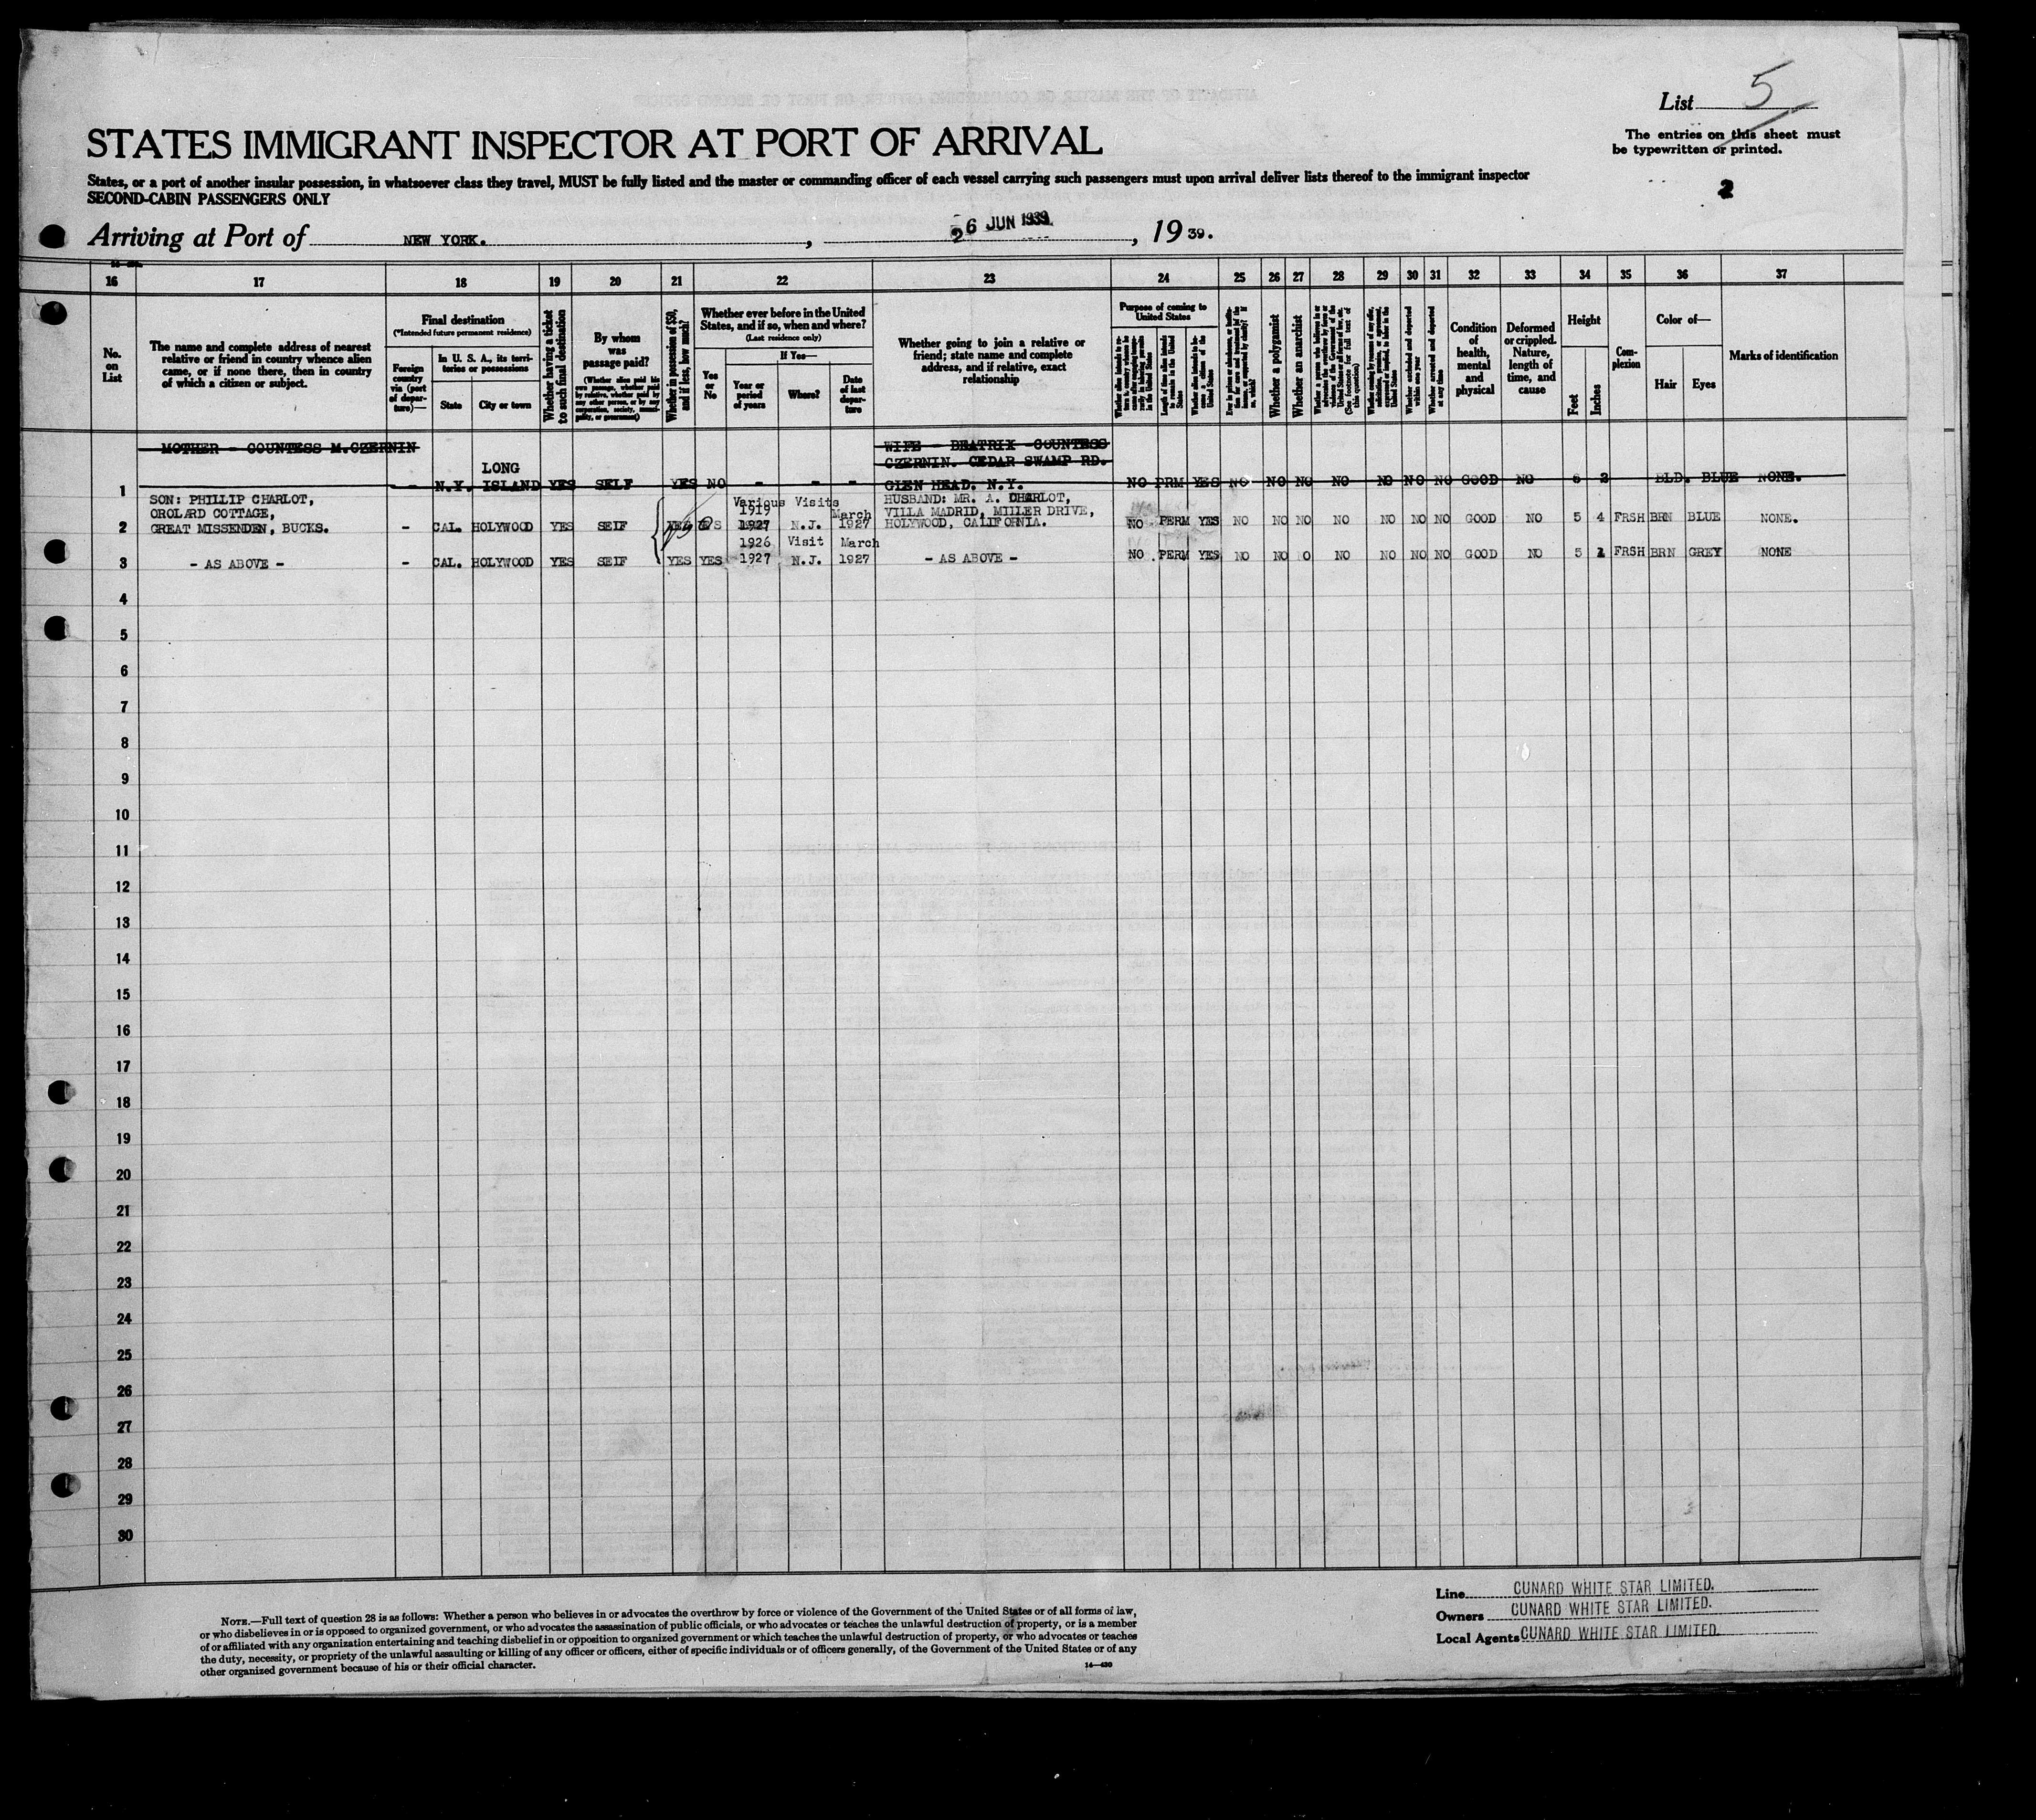 List 5
The entries on this sheet must
be typewritten or printed.
2
STATES IMMIGRANT INSPECTOR AT PORT OF ARRIVAL
States, or a port of another insular possession, in whatsoever class they travel, MUST be fully listed and the master or commanding officer of each vessel carrying such passengers must upon arrival deliver lists thereof to the immigrant inspector
SECOND-CABIN PASSENGERS ONLY
Arriving at Port of NEW YORK. , 26 JUN 1939 , 19 39.
16 17 18 19 20 21 22 23 24 25 26 27 28 29 30 31 32 33 34 35 36 37
No.
on
List
The name and complete address of nearest
relative or friend in country whence alien
came, or if none there, then in country
of which a citizen or subject.
Final destination
(*Intended future permanent residence)
Foreign
country
via (port
of depar-
ture)—
In U. S. A., its terri-
tories or possessions
State
City or town
Whether having a ticket
to such final destination
By whom
was
passage paid?
(Whether alien paid his
own passage, whether paid
by relative, whether paid by
any other person, or by any
corporation, society, munici-
pality, or government)
Whether in possession of $50,
and if less, how much?
Whether ever before in the United
States, and if so, when and where?
(Last residence only)
Yes
or
No
If Yes—
Year or
period
of years
Where?
Date
of last
depar-
ture
Whether going to join a relative or
friend; state name and complete
address, and if relative, exact
relationship
Purpose of coming to
United States
Whether a polygamist
Whether an anarchist
Whether excluded and deported
within one year
Whether arrested and deported
at any time
Condition
of
health,
mental
and
physical
Deformed
or crippled.
Nature,
length of
time, and
cause
Height
Feet
Inches
Com-
plexion
Color of—
Hair
Eyes
Marks of identification
MOTHER - COUNTESS M.CZERNIN
WIFE - BEATRIX COUNTESS
CZERNIN. CEDAR SWAMP RD.
LONG
1 - N.Y. ISLAND YES SELF YES NO - - - GLEN HEAD. N.Y. NO PRM YES NO NO NO NO NO NO NO GOOD NO 6 2 BLD. BLUE NONE.
SON: PHILLIP CHARLOT, Various Visits HUSBAND: MR. A. CHARLOT,
OROLARD COTTAGE, 1919 March VILLA MADRID, MILLER DRIVE,
2 GREAT MISSENDEN, BUCKS. - CAL. HOLYWOOD YES SEIF YES 1927 N.J. 1927 HOLYWOOD, CALIFORNIA. NO PERM YES NO NO NO NO NO NO NO GOOD NO 5 4 FRSH BRN BLUE NONE.
1926 Visit March
3 - AS ABOVE - - CAL. HOLYWOOD YES SEIF YES YES 1927 N.J. 1927 - AS ABOVE - NO PERM YES NO NO O NO NO NO NO GOOD NO 5 1 FRSH BRN GREY NONE
4
5
6
7
8
9
10
11
12
13
14
15
16
17
18
19
20
21
22
23
24
25
26
27
28
29
30
NOTE.—Full text of question 28 is as follows: Whether a person who believes in or advocates the overthrow by force or violence of the Government of the United States or of all forms of law,
or who disbelieves in or is opposed to organized government, or who advocates the assassination of public officials, or who advocates or teaches the unlawful destruction of property, or is a member
of or affiliated with any organization entertaining and teaching disbelief in or opposition to organized government or which teaches the unlawful destruction of property, or who advocates or teaches
the duty, necessity, or propriety of the unlawful assaulting or killing of any officer or officers, either of specific individuals or of officers generally, of the Government of the United States or of any
other organized government because of his or their official character.
14—430
Line CUNARD WHITE STAR LIMITED.
Owners CUNARD WHITE STAR LIMITED.
Local Agents CUNARD WHITE STAR LIMITED.